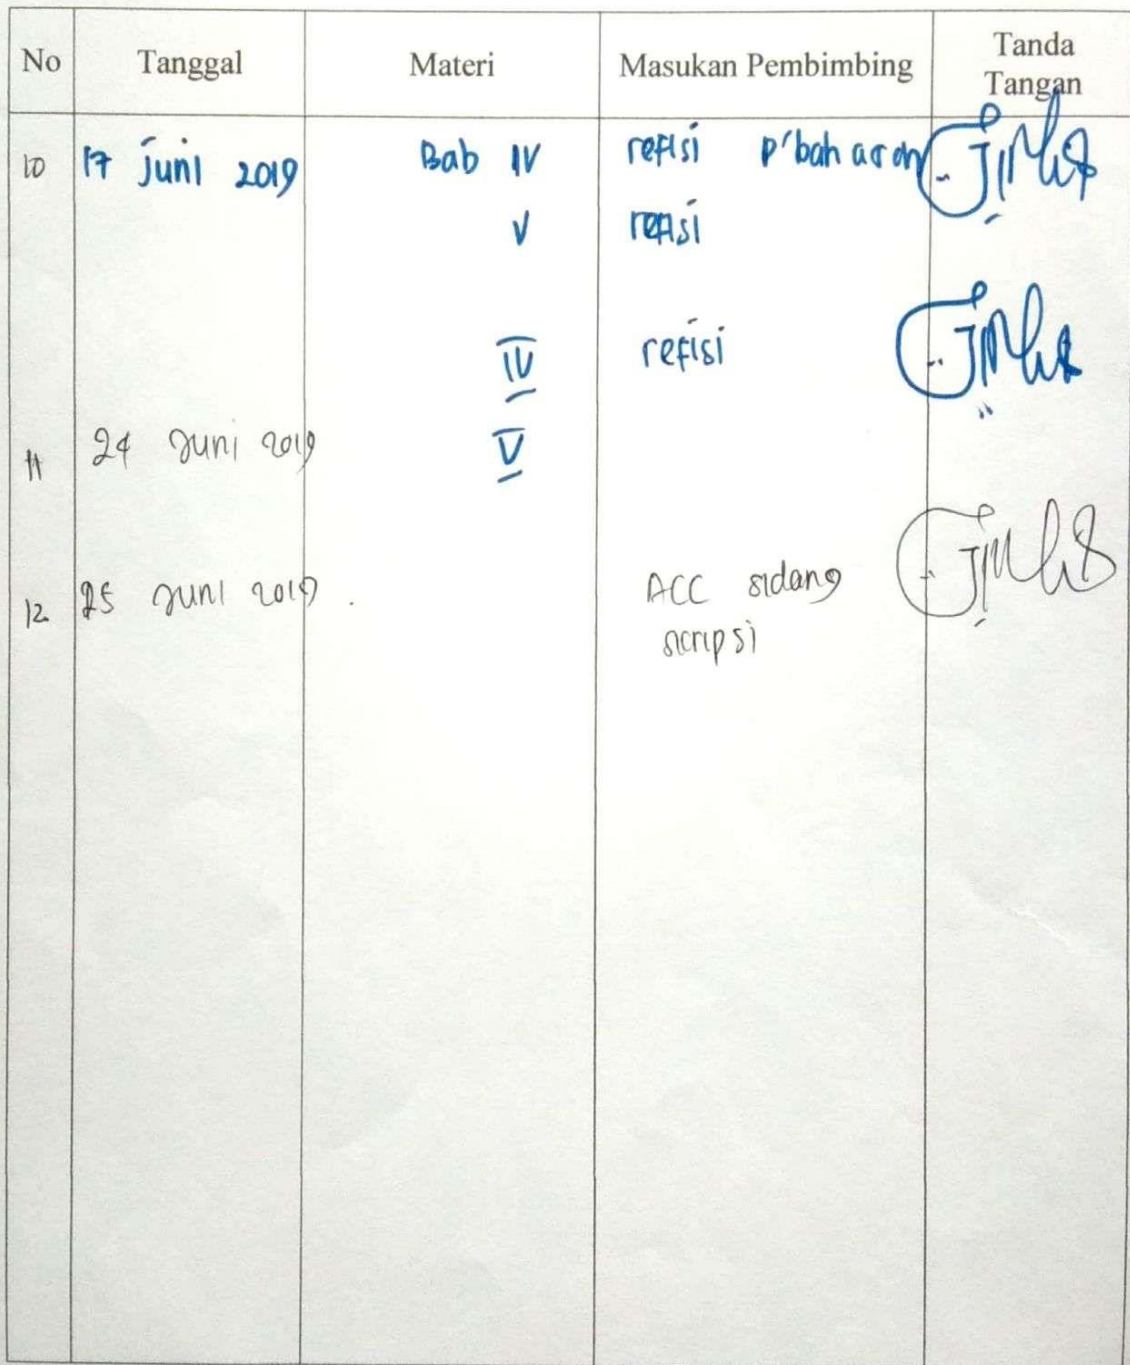 No Tanggal Materi Masukan Pembimbing Tanda Tangan
10 17 Juni 2019 Bab IV refisi p'bahasan
V refisi
IV refisi
11 24 Juni 2019 V
12 25 Juni 2019 . ACC sidang
scripsi